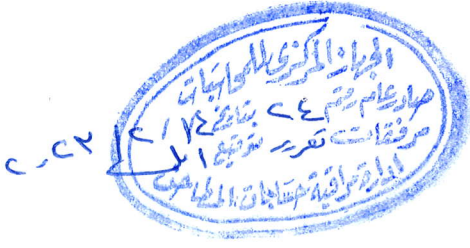 الجهاز المركزى للمحاسبات
صادر عام رقم ٢٤ بتاريخ ١٤ / ٢ / ٢٠٢٣
مرفقات تقرير توقيع
إدارة مراقبة حسابات المطاحن